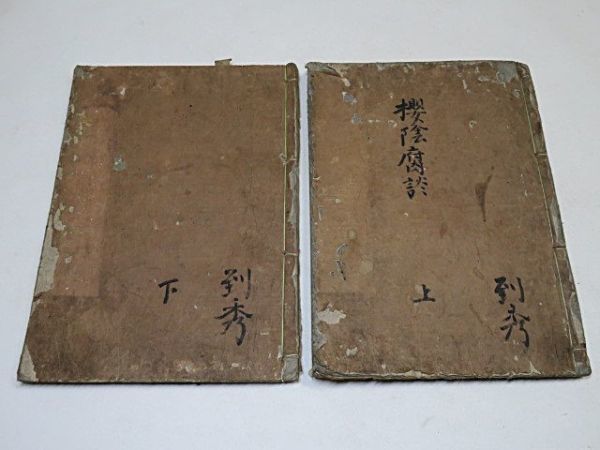 櫻陰腐談
上
到秀
下
到秀